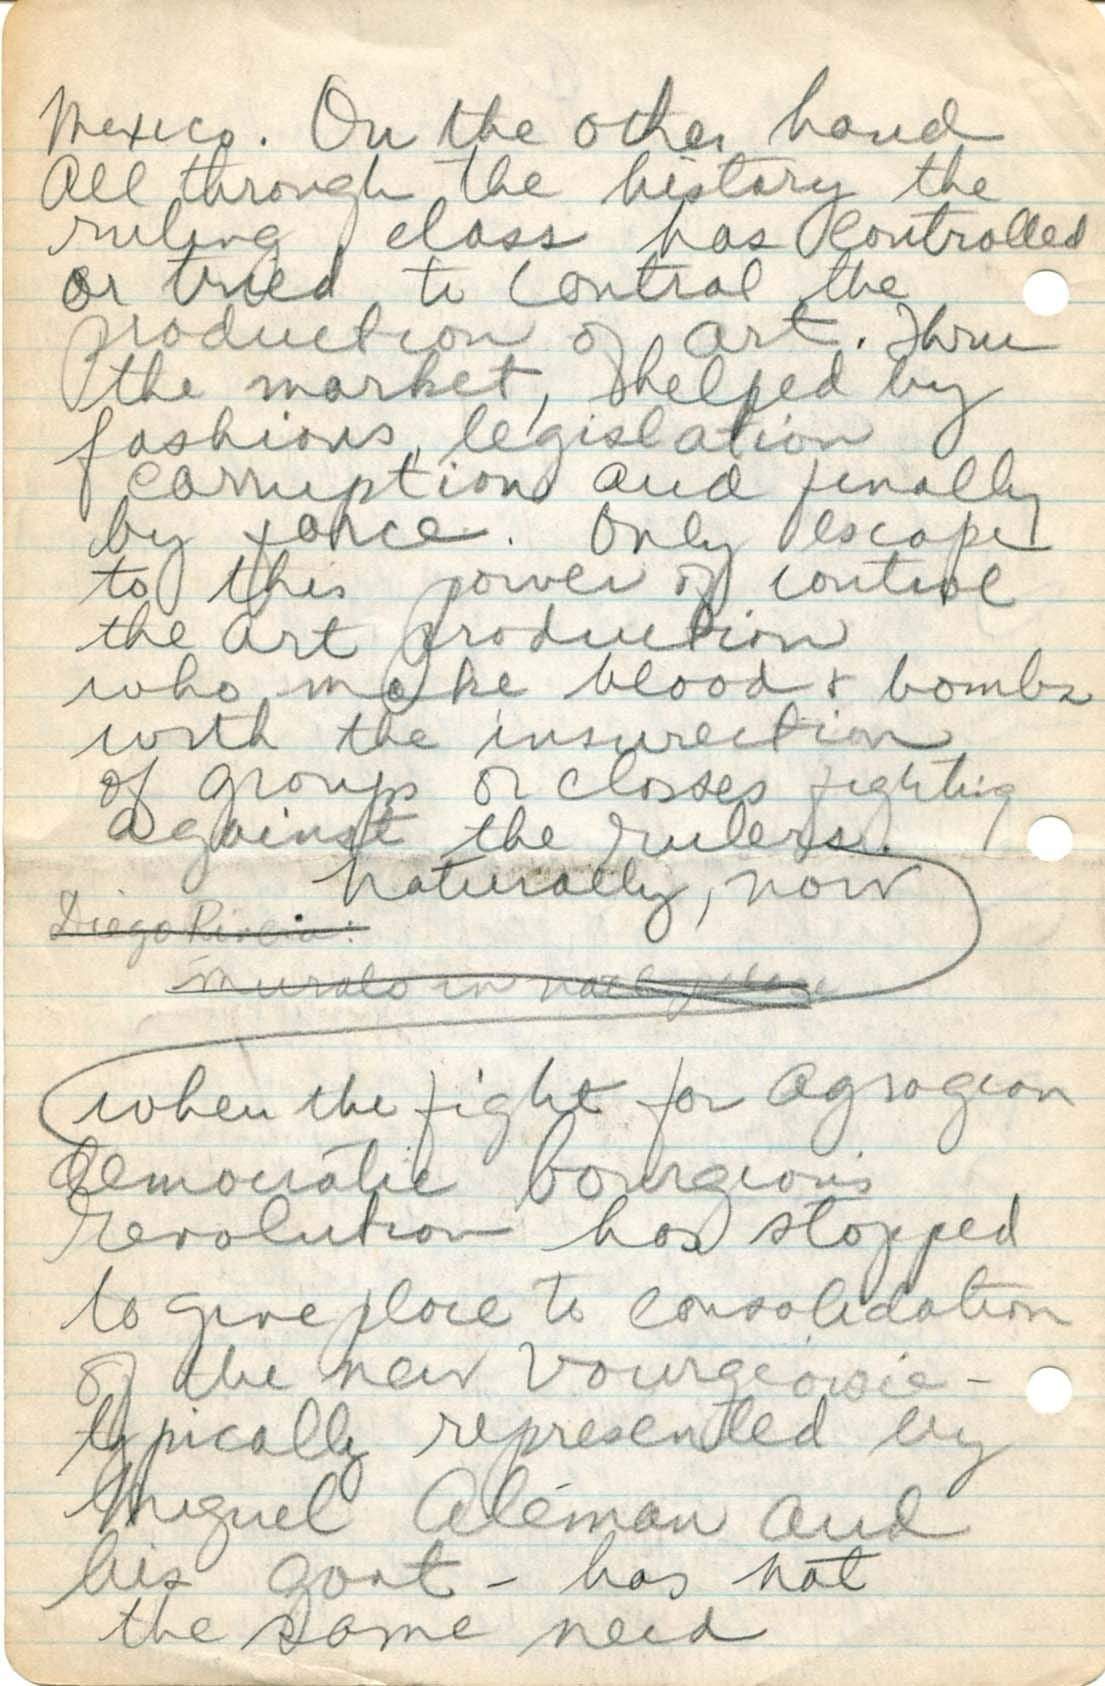 Mexico. On the other hand
All through the history the
ruling class has controlled
or tried to control the
production of art. Thru
the market, helped by
fashions, legislation
corruption and finally
by force. Only escape
to this power of control
the art production
who make blood & bombs
with the insurection
of groups or classes fighting
against the rulers.
Naturally, now
Diego Rivera:
Murals in Natl
when the fight for agragian
democratic bourgeois
revolution has stopped
to give place to consolidation
of the new bourgeoisie -
typically represented by
Miguel Aléman and
his govt - has not
the same need